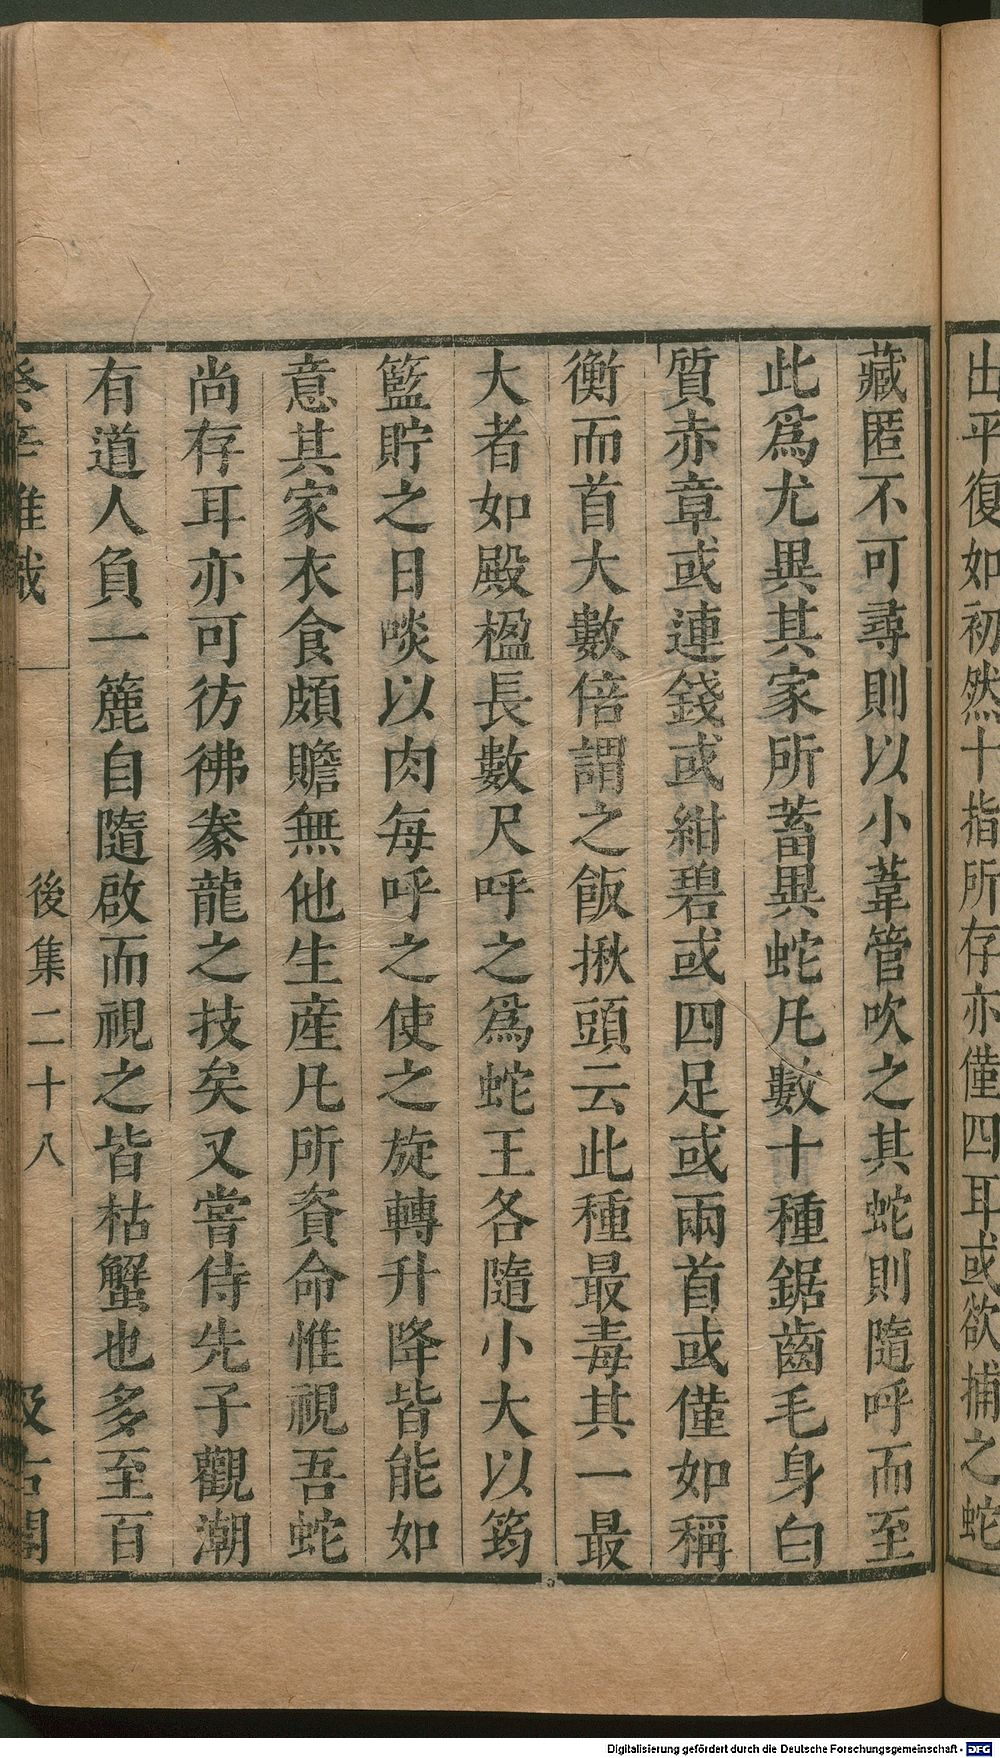 出平復如初然十指所存亦僅四耳或欲捕之蛇
藏匿不可尋則以小葦管吹之其蛇則隨呼而至
此爲尤異其家所蓄異蛇凡數十種鋸齒毛身白
質赤章或連錢或紺碧或四足或兩首或僅如稱
衡而首大數倍謂之飯揪頭云此種最毒其一最
大者如殿楹長數尺呼之爲蛇王各隨小大以筠
籃貯之日啖以肉每呼之使之旋轉升降皆能如
意其家衣食頗贍無他生産凡所資命惟視吾蛇
尚存耳亦可彷彿豢龍之技矣又嘗侍先子觀潮
有道人負一簏自隨啟而視之皆枯蟹也多至百
癸辛雜識 後集二十八 汲古閣
Digitalisierung gefördert durch die Deutsche Forschungsgemeinschaft - DFG